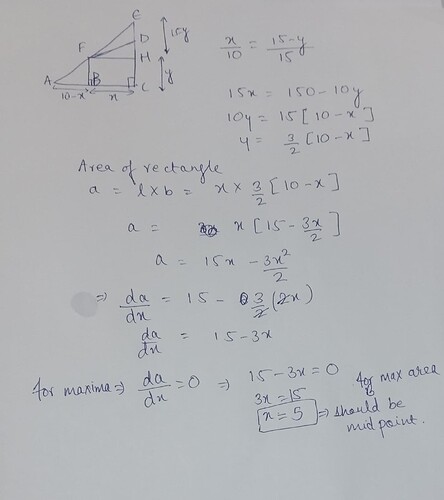 E
D
15-y
F
H
y
A
B
C
10-x
x
x/10 = 15-y/15
15x = 150-10y
10y = 15[10-x]
y = 3/2 [10-x]
Area of rectangle
a = l x b = x x 3/2 [10-x]
a = x[15-3x/2]
a = 15x - 3x²/2
⇒ da/dx = 15 - 3/2 (2x)
da/dx = 15-3x
for maxima ⇒ da/dx = 0 ⇒ 15-3x = 0
3x = 15
x = 5 ⇒ should be
mid point.
for max area